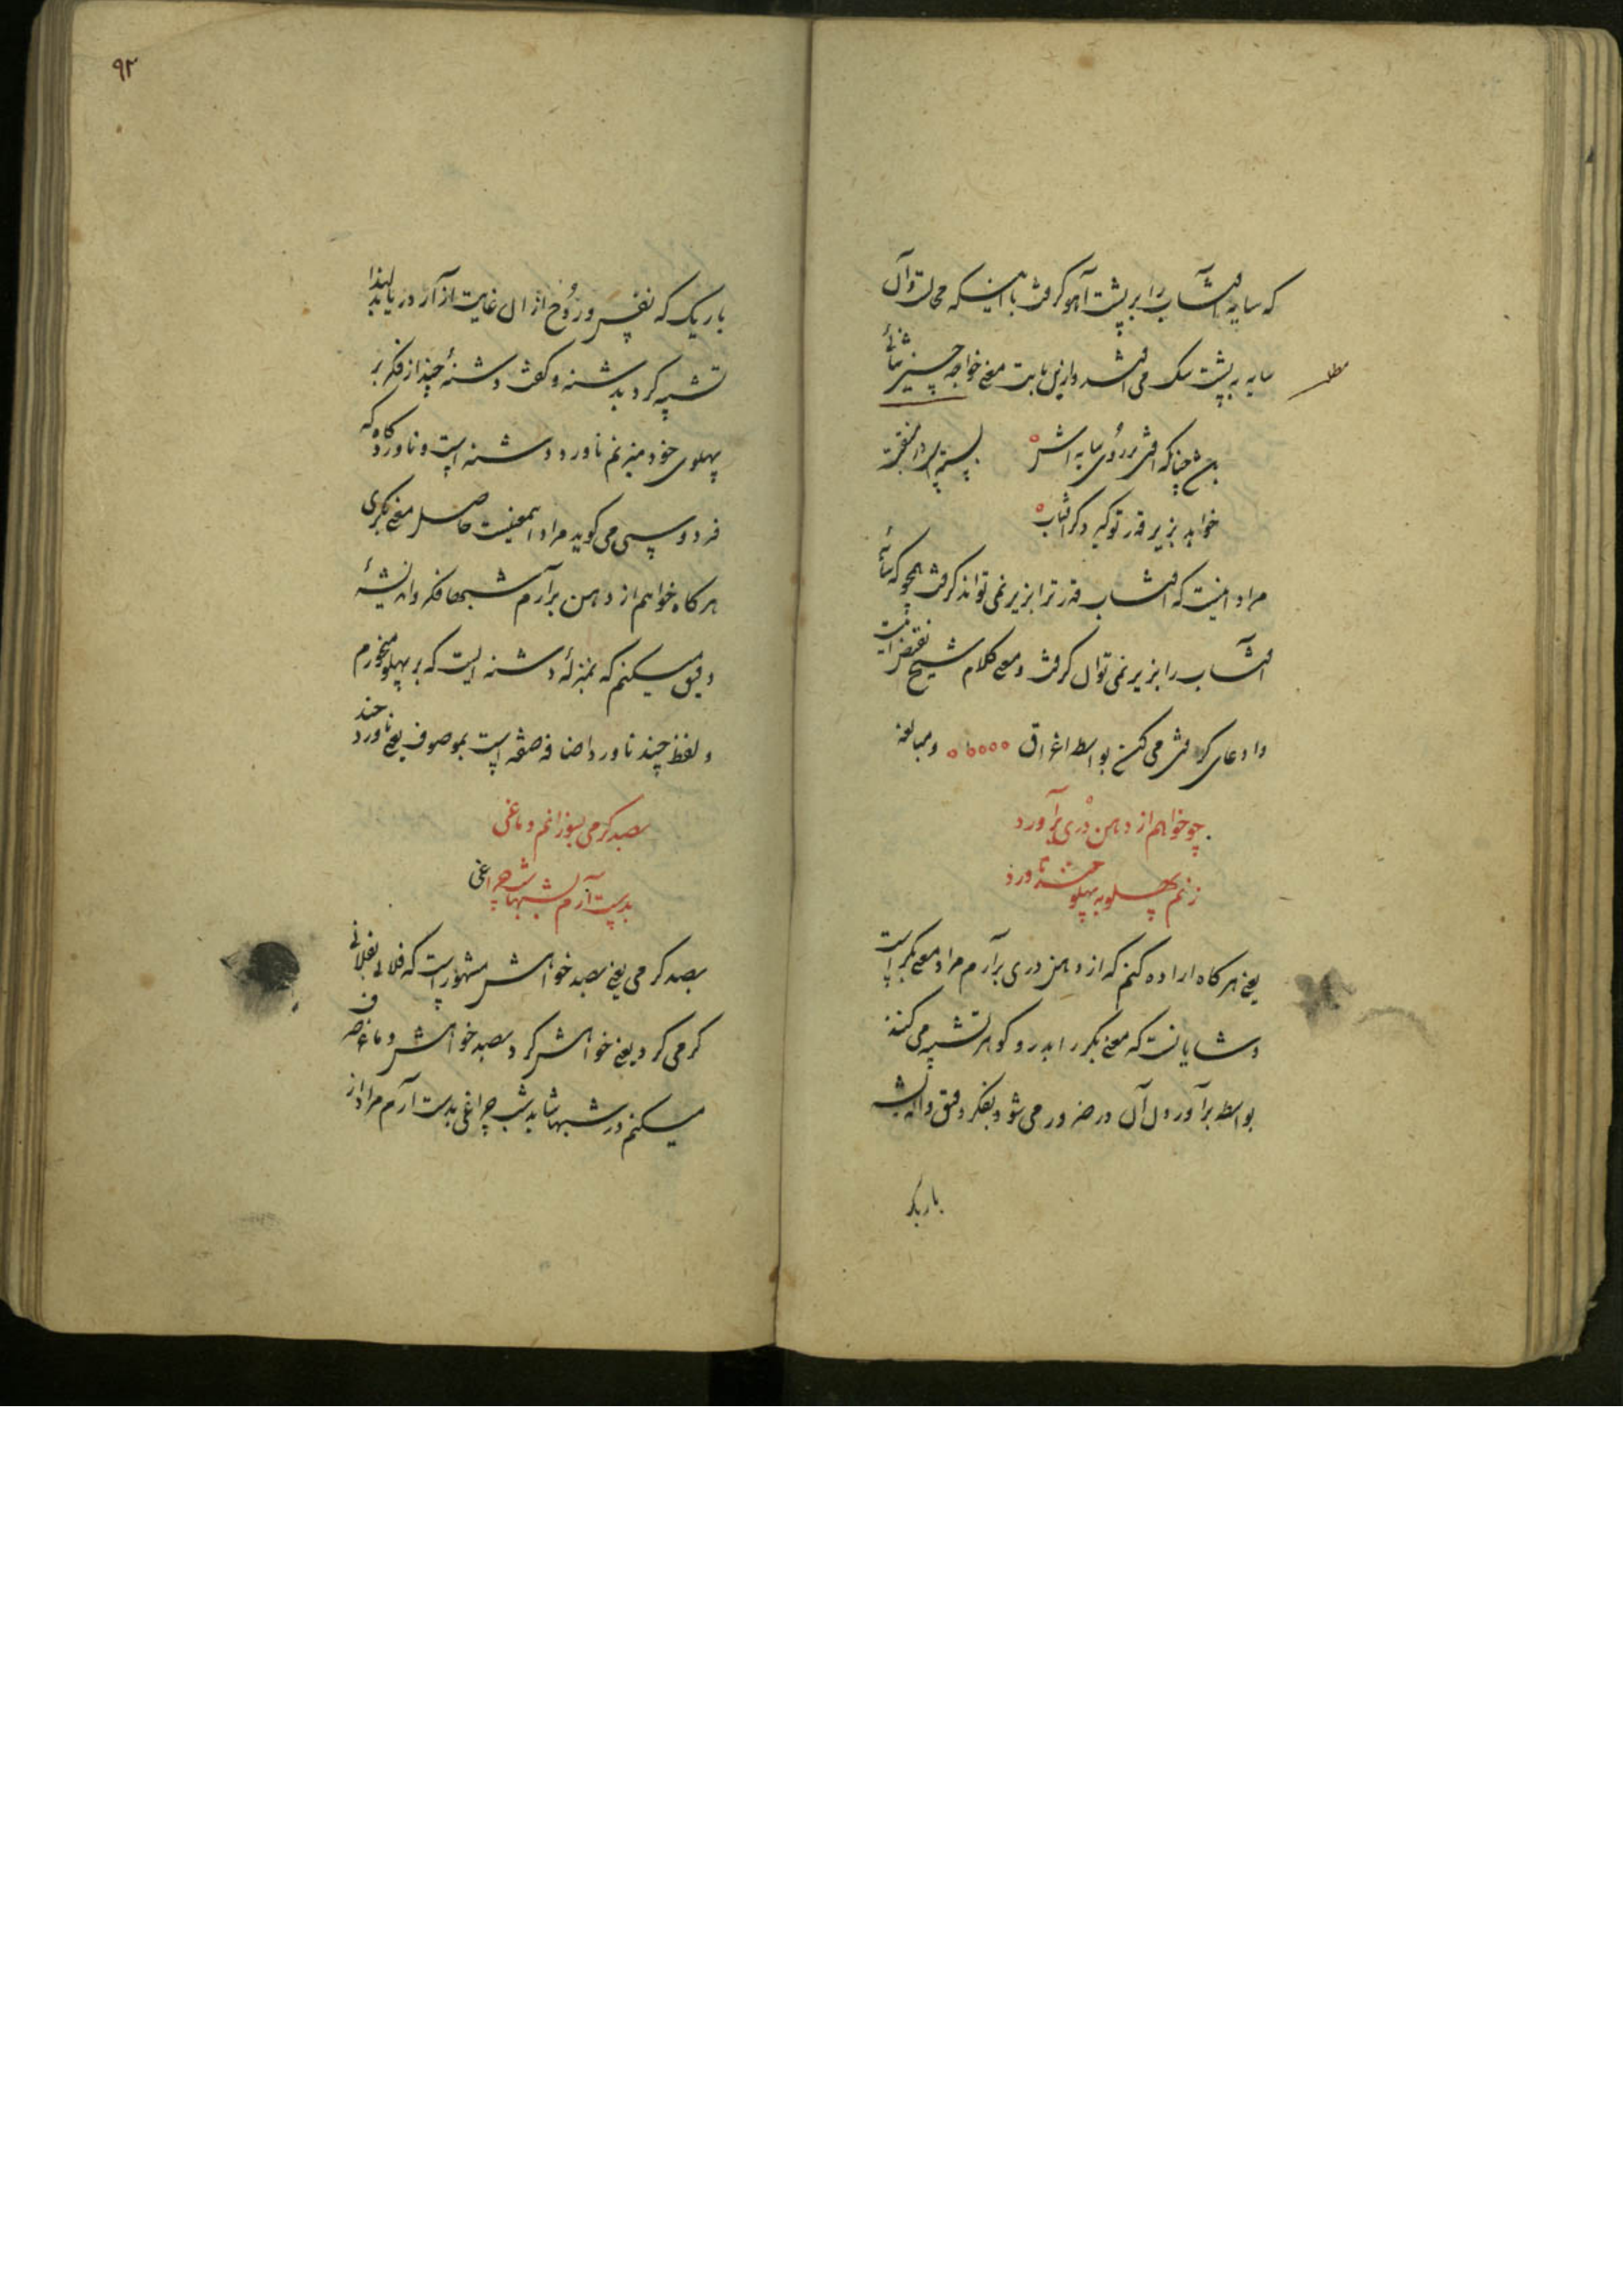 که سایه آفتاب را بر پشت آهو گرفت با اینکه محالست و آن
سایه به پشت سگ می افتد و ازین بابت معنی خواجه حسین ثنائی
مطلب
چنانکه افتی بر روی سایه اش
خواهد بزیر قدر تو گیرد گر آفتاب
مراد اینست که آفتاب قدر ترا بزیر نمی تواند گرفت همچو که سایهٔ
آفتاب را بزیر نمی توان گرفت و معنی کلام شیخ
و ادعای گرفتن می کند بواسطه اغراق و مبالغه
چو خواهم از دهن دری برآورد
زنم پهلو به پهلو چند ناورد
یعنی هرگاه اراده کنم که از دهن دری برآرم مراد معنی بکر است
و شایانست که معنی بکر را بدر و گوهر تشبیه می کنند
بواسطه برآوردن آن در ضرور می شود بفکر دقیق و اندیشه
باریک
۹۲
باریک که نفس و روح از آن غایت آزار دریابد لهذا
تشبیه کرد بدشنه و گفت دشنهٔ چند از فکر بر
پهلوی خود میزنم ناورد دشنه است و ناورد گاه که
فردوسی می گوید مراد اینمعنیست حاصل معنی بکری
هرگاه خواهم از دهن برآرم شبها فکر و اندیشهٔ
دقیق میکنم که بمنزلهٔ دشنه ایست که بر پهلو میخورم
و لفظ چند ناورد اضافه صفه است بموصوف یعنی ناورد چند
بصد گرمی بسوزانم دماغی
بدست آرم بشبها شبچراغی
بصد گرمی یعنی بصد خواهش مشهور است که فلانی بفلانی
گرمی کرد یعنی خواهش کرد و بصد خواهش دماغ صرف
میکنم در شبها شاید شب چراغی بدست آرم مراد از